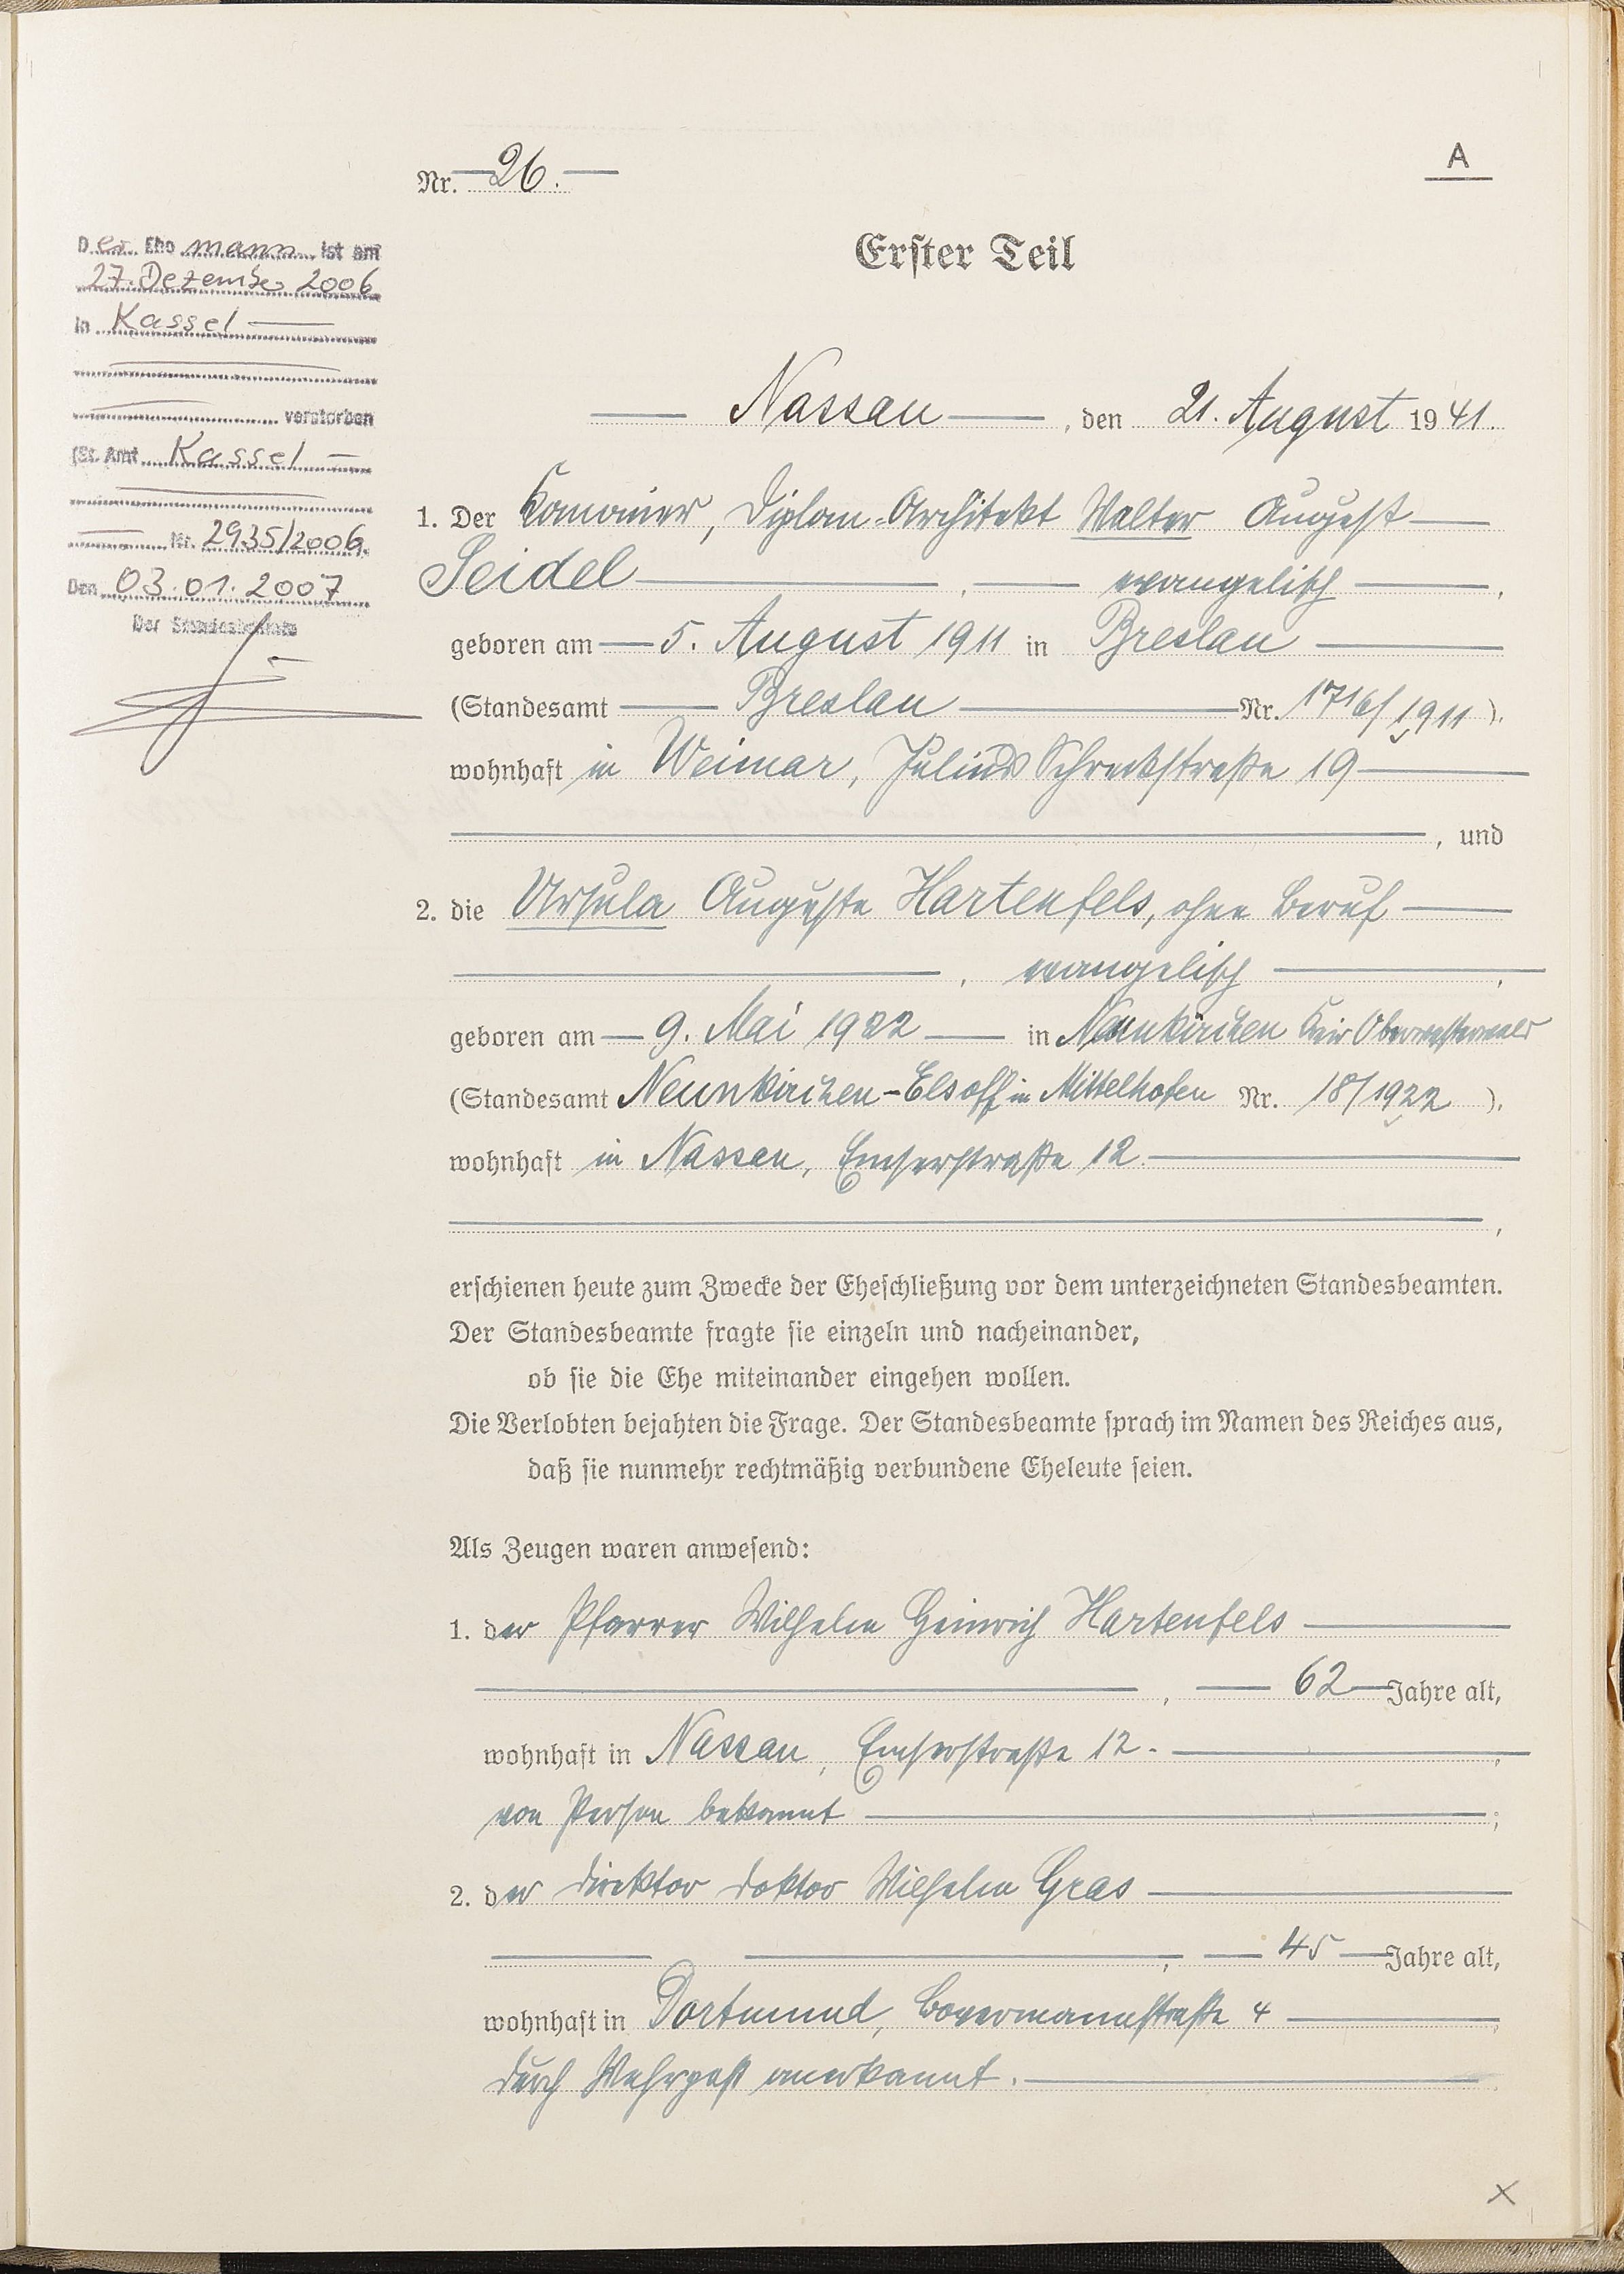 A
Nr. 26.
Erster Teil
Der Ehe mann ist am
27. Dezember 2006
in Kassel
verstorben
(St. Amt Kassel
Nr. 2935/2006.
Den 03.01.2007
Der Standesbeamte
Nassau, den 21. August 1941.
1. Der Kanonier, Diplom-Architekt Walter August
Seidel, evangelisch,
geboren am 5. August 1911 in Breslau
(Standesamt Breslau Nr. 1716/1911).
wohnhaft in Weimar, Julius Schreckstraße 19
, und
2. die Ursula Auguste Hartenfels, ohne Beruf
, evangelisch,
geboren am 9. Mai 1922 in Neunkirchen Oberwesterwald
(Standesamt Neunkirchen-Elsoff in Mittelhofen Nr. 18/1922).
wohnhaft in Nassau, Emserstraße 12.
,
erschienen heute zum Zwecke der Eheschließung vor dem unterzeichneten Standesbeamten.
Der Standesbeamte fragte sie einzeln und nacheinander,
ob sie die Ehe miteinander eingehen wollen.
Die Verlobten bejahten die Frage. Der Standesbeamte sprach im Namen des Reiches aus,
daß sie nunmehr rechtmäßig verbundene Eheleute seien.
Als Zeugen waren anwesend:
1. der Pfarrer Wilhelm Heinrich Hartenfels
, 62 Jahre alt,
wohnhaft in Nassau, Emserstraße 12.,
von Person bekannt;
2. der Direktor Doktor Wilhelm Gras
, 45 Jahre alt,
wohnhaft in Dortmund, Bovermannstraße 4,
durch Wehrpaß anerkannt.
x